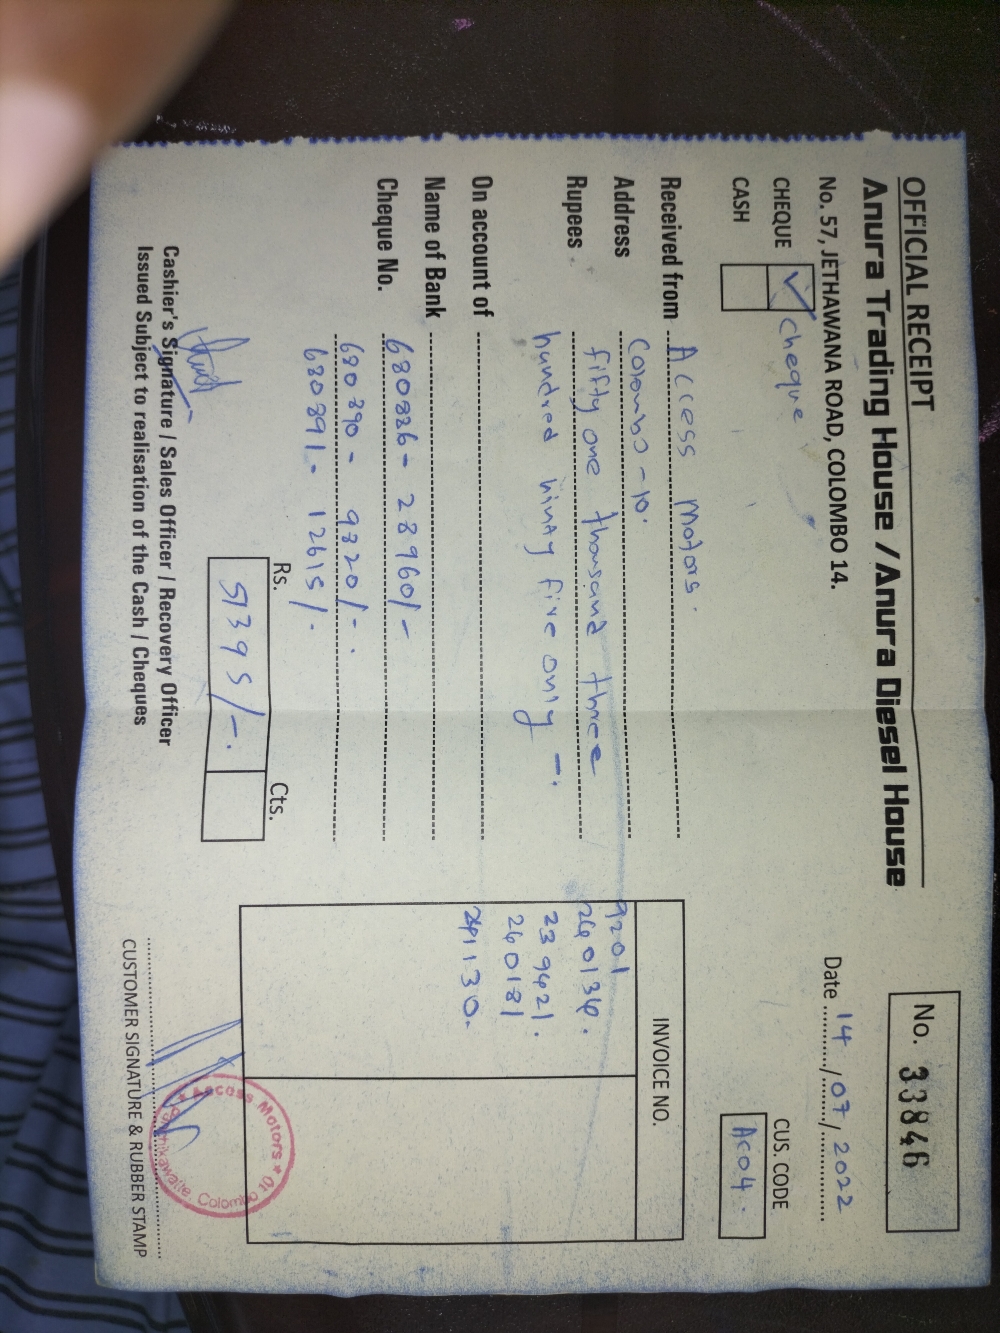 OFFICIAL RECEIPT
Anura Trading House / Anura Diesel House
No. 33846
No. 57, JETHAWANA ROAD, COLOMBO 14.
Date 14/07/2022
CHEQUE ✓ cheque
CASH
CUS. CODE
AC04.
Received from Access Motors.
Address Colombo -10.
Rupees fifty one thousand three
hundred ninty five only -.
On account of
Name of Bank
Cheque No. 680886 - 28960/-
680890 - 9820/-.
680891 - 12615/-
INVOICE NO.
9201
240134.
239421.
240181
241130.
Rs. Cts.
51395/-.
Cashier's Signature / Sales Officer / Recovery Officer
Issued Subject to realisation of the Cash / Cheques
Access Motors
Colombo 10
CUSTOMER SIGNATURE & RUBBER STAMP